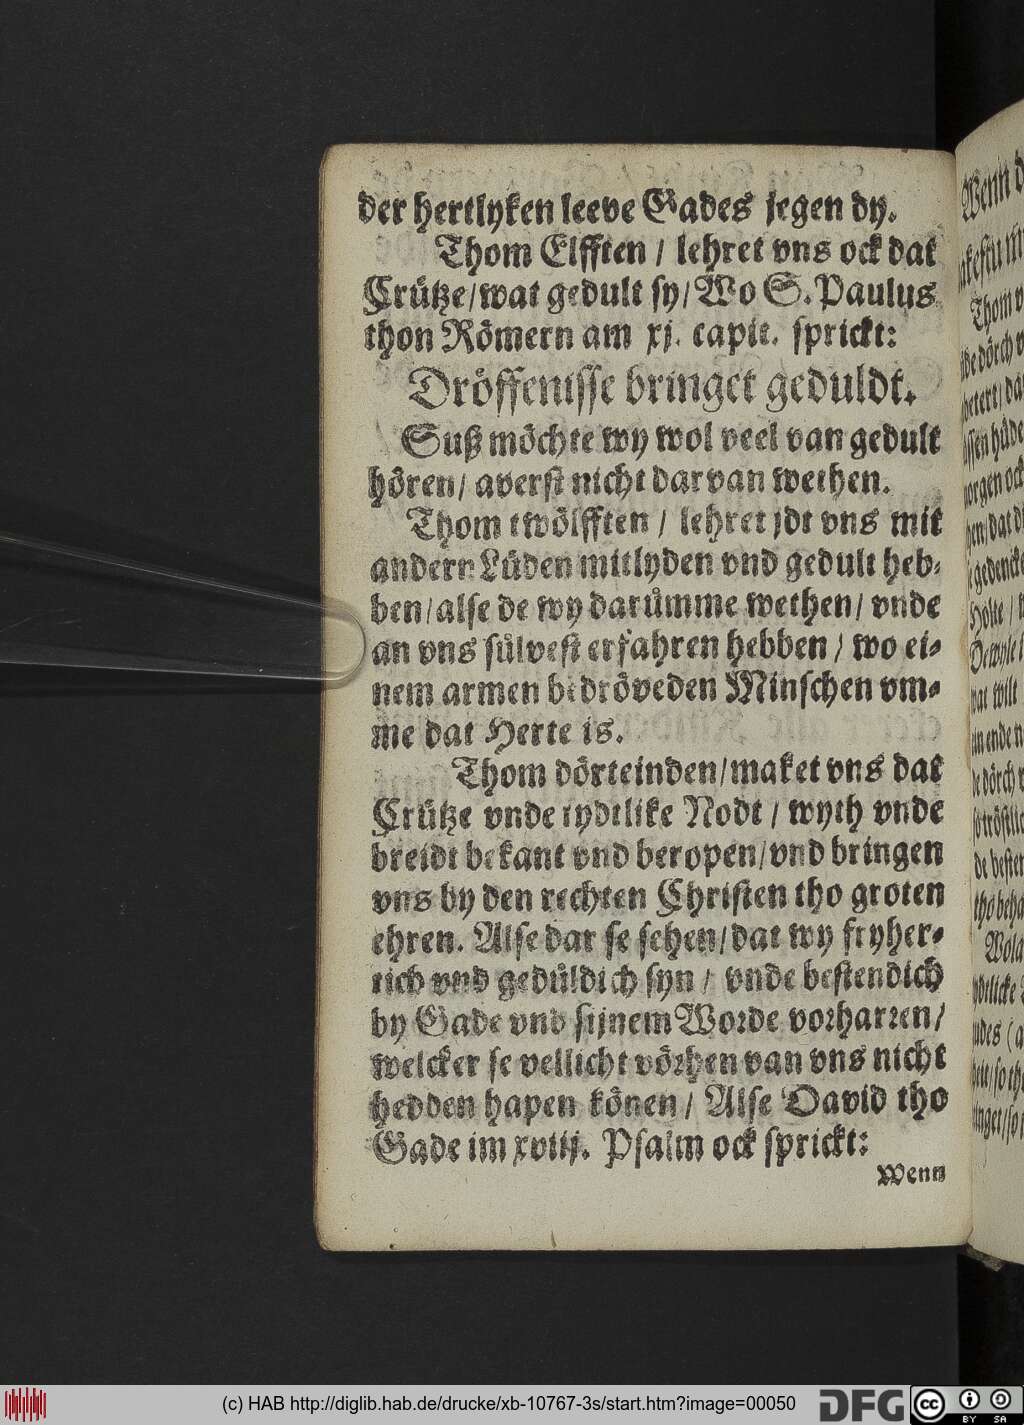 der hertlyken leeve Gades jegen dy.
Thom Elfften / lehret vns ock dat
Crütze/wat gedult sy/ Wo S. Paulus
thon Römern am xj. capit. sprickt:
Dröffenisse bringet geduldt.
Suß möchte wy wol veel van gedult
hören/ averst nicht darvan wethen.
Thom twölfften / lehret jdt vns mit
andern Lüden mitlyden vnd gedult heb-
ben/alse de wy darümme wethen/ vnde
an vns sülvest erfahren hebben / wo ei-
nem armen bedröveden Minschen vm-
me dat Herte is.
Thom dörteinden/maket vns dat
Crütze vnde tydtlike Nodt / wyth vnde
breidt bekant vnd beropen/vnd bringen
vns by den rechten Christen tho groten
ehren. Alse dar se sehen/dat wy fryher-
tich vnd gedüldich syn / vnde bestendich
by Gade vnd sijnem Worde vorharren/
welcker se vellicht vörhen van vns nicht
hedden hapen könen/ Alse David tho
Gade im xviij. Psalm ock sprickt:
Wenn
(c) HAB http://diglib.hab.de/drucke/xb-10767-3s/start.htm?image=00050
DFG
cc
BY SA